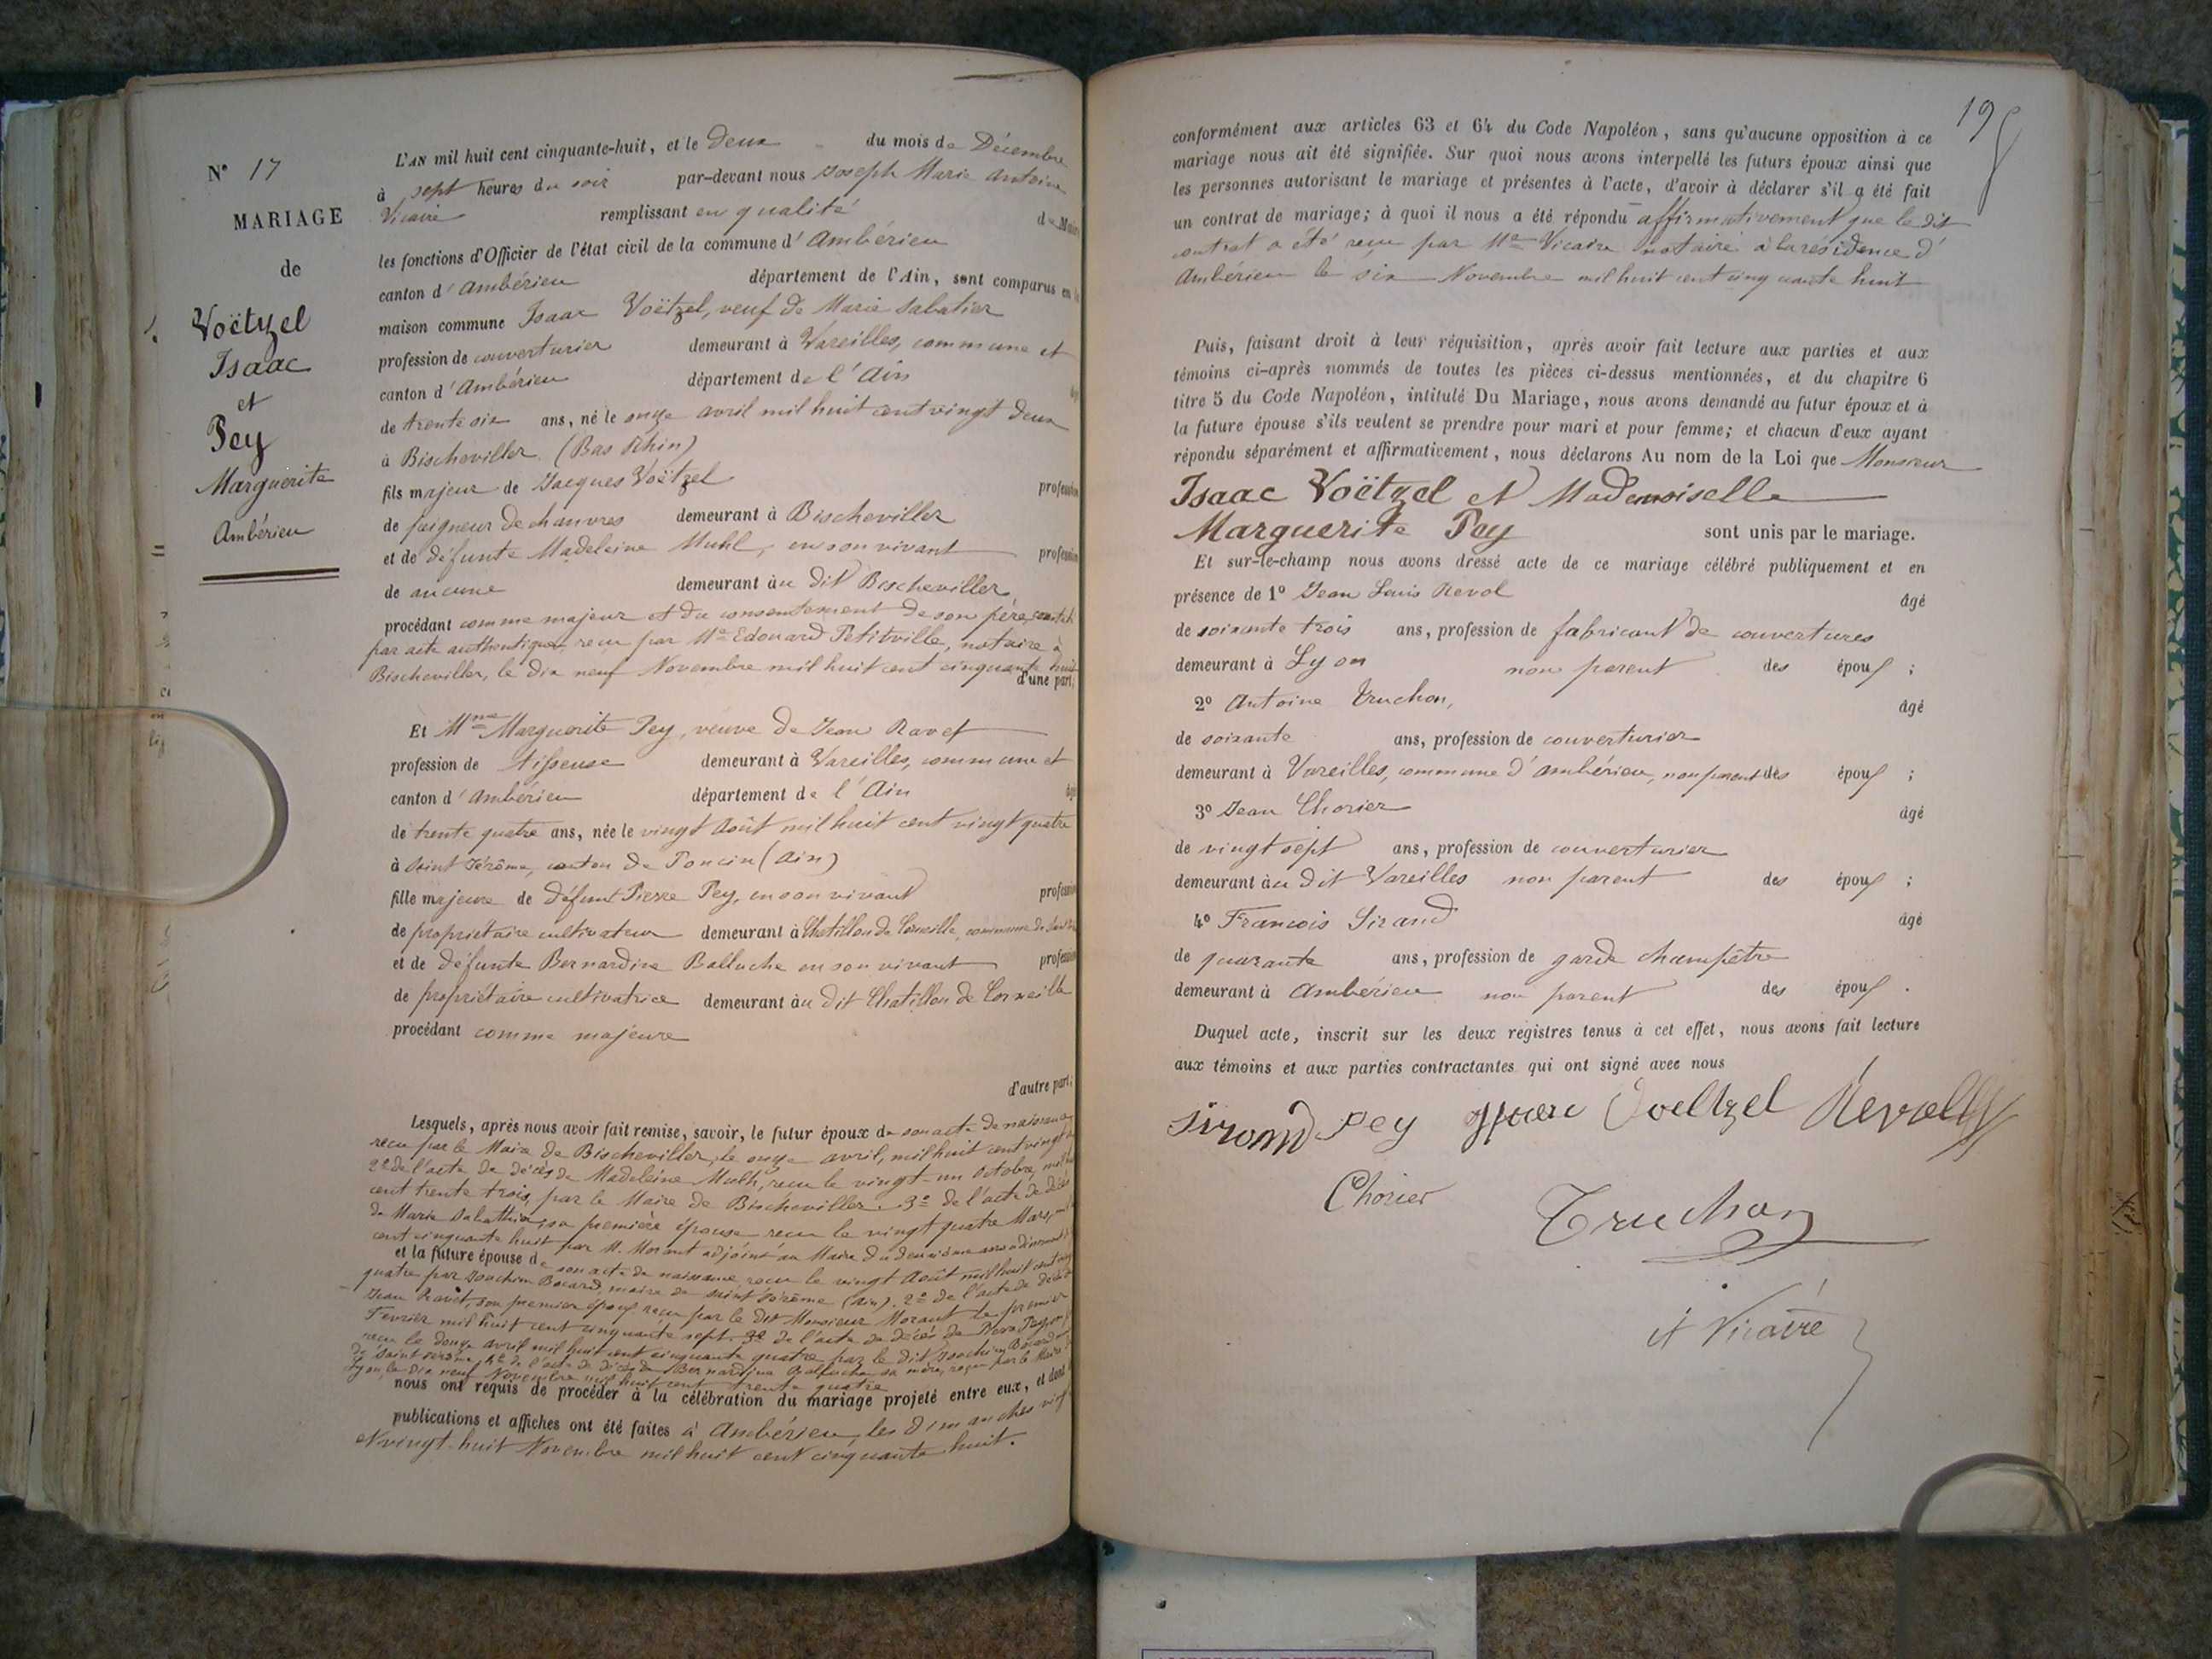 N° 17
MARIAGE
de
Voëtzel
Isaac
et
Pey
Marguerite
Ambérieu
L'AN mil huit cent cinquante-huit, et le Deux du mois de Décembre
à sept heures du soir par-devant nous Joseph Marie Antoine
Vicaire remplissant en qualité de Maire
les fonctions d'Officier de l'état civil de la commune d'Ambérieu
canton d'Ambérieu département de l'Ain, sont comparus en la
maison commune Isaac Voëtzel, veuf de Marie Sabatier
profession de couverturier demeurant à Vareilles, commune et
canton d'Ambérieu département de l'Ain
de trente six ans, né le onze avril mil huit cent vingt deux
à Bischeviller (Bas Rhin)
fils majeur de Jacques Voëtzel profession
de peigneur de chanvres demeurant à Bischeviller
et de défunte Madeleine Muhl, en son vivant profession
de aucune demeurant au dit Bischeviller
procédant comme majeur et du consentement de son père, constaté
par acte authentique, reçu par Me Edouard Petitville, notaire à
Bischeviller, le dix neuf Novembre mil huit cent cinquante huit
d'une part;
Et Mme Marguerite Pey, veuve de Jean Ravet
profession de tisseuse demeurant à Vareilles, commune et
canton d'Ambérieu département de l'Ain
de trente quatre ans, née le vingt Août mil huit cent vingt quatre
à Saint Jérôme, canton de Poncin (Ain)
fille majeure de défunt Pierre Pey, en son vivant profession
de propriétaire cultivateur demeurant à Chatillon de Corneille, commune de
et de défunte Bernardine Balluche en son vivant profession
de propriétaire cultivatrice demeurant au dit Chatillon de Corneille
procédant comme majeure
d'autre part;
Lesquels, après nous avoir fait remise, savoir, le futur époux de son acte de naissance
reçu par le Maire de Bischeviller, le onze avril, mil huit cent vingt
2° de l'acte de décès de Madeleine Muhl, reçu le vingt-un octobre, mil
cent trente trois, par le Maire de Bischeviller. 3° de l'acte de décès
de Marie Sabathier, sa première épouse reçu le vingt quatre Mars, mil
cent cinquante huit par M. Morant adjoint au Maire du deuxième arrondissement
et la future épouse de son acte de naissance, reçu le vingt Août mil huit cent vingt
quatre par Joachim Bocard, maire de Saint Jérôme (Ain). 2° de l'acte de décès de
Jean Ravet, son premier époux reçu par le dit Monsieur Morant le premier
Février mil huit cent cinquante sept. 3° de l'acte de décès de
reçu le douze avril mil huit cent cinquante quatre par le dit Joachim Bocard
de Saint Jérôme, 4° de l'acte de décès de Bernardine Balluche sa mère, reçu par le Maire
Lyon, le dix neuf Novembre mil huit cent trente quatre
nous ont requis de procéder à la célébration du mariage projeté entre eux, et dont
publications et affiches ont été faites à Ambérieu, les Dimanches vingt
et vingt-huit Novembre mil huit cent cinquante huit.
198
conformément aux articles 63 et 64 du Code Napoléon, sans qu'aucune opposition à ce
mariage nous ait été signifiée. Sur quoi nous avons interpellé les futurs époux ainsi que
les personnes autorisant le mariage et présentes à l'acte, d'avoir à déclarer s'il a été fait
un contrat de mariage; à quoi il nous a été répondu affirmativement que le dit
contrat a été reçu par Me Vicaire notaire à la résidence d'
Ambérieu le six Novembre mil huit cent cinquante huit
Puis, faisant droit à leur réquisition, après avoir fait lecture aux parties et aux
témoins ci-après nommés de toutes les pièces ci-dessus mentionnées, et du chapitre 6
titre 5 du Code Napoléon, intitulé Du Mariage, nous avons demandé au futur époux et à
la future épouse s'ils veulent se prendre pour mari et pour femme; et chacun d'eux ayant
répondu séparément et affirmativement, nous déclarons Au nom de la Loi que Monsieur
Isaac Voëtzel et Mademoiselle
Marguerite Pey sont unis par le mariage.
Et sur-le-champ nous avons dressé acte de ce mariage célébré publiquement et en
présence de 1° Jean Louis Revol âgé
de soixante trois ans, profession de fabricant de couvertures
demeurant à Lyon non parent des époux ;
2° Antoine Truchon, âgé
de soixante ans, profession de couverturier
demeurant à Vareilles, commune d'Ambérieu, non parent des époux ;
3° Jean Chorier âgé
de vingt sept ans, profession de couverturier
demeurant au dit Vareilles non parent des époux ;
4° François Sirand âgé
de quarante ans, profession de garde champêtre
demeurant à Ambérieu non parent des époux .
Duquel acte, inscrit sur les deux registres tenus à cet effet, nous avons fait lecture
aux témoins et aux parties contractantes qui ont signé avec nous
Sirand Pey Isaac Voeltzel Revol
Chorier Truchon
A Vicaire